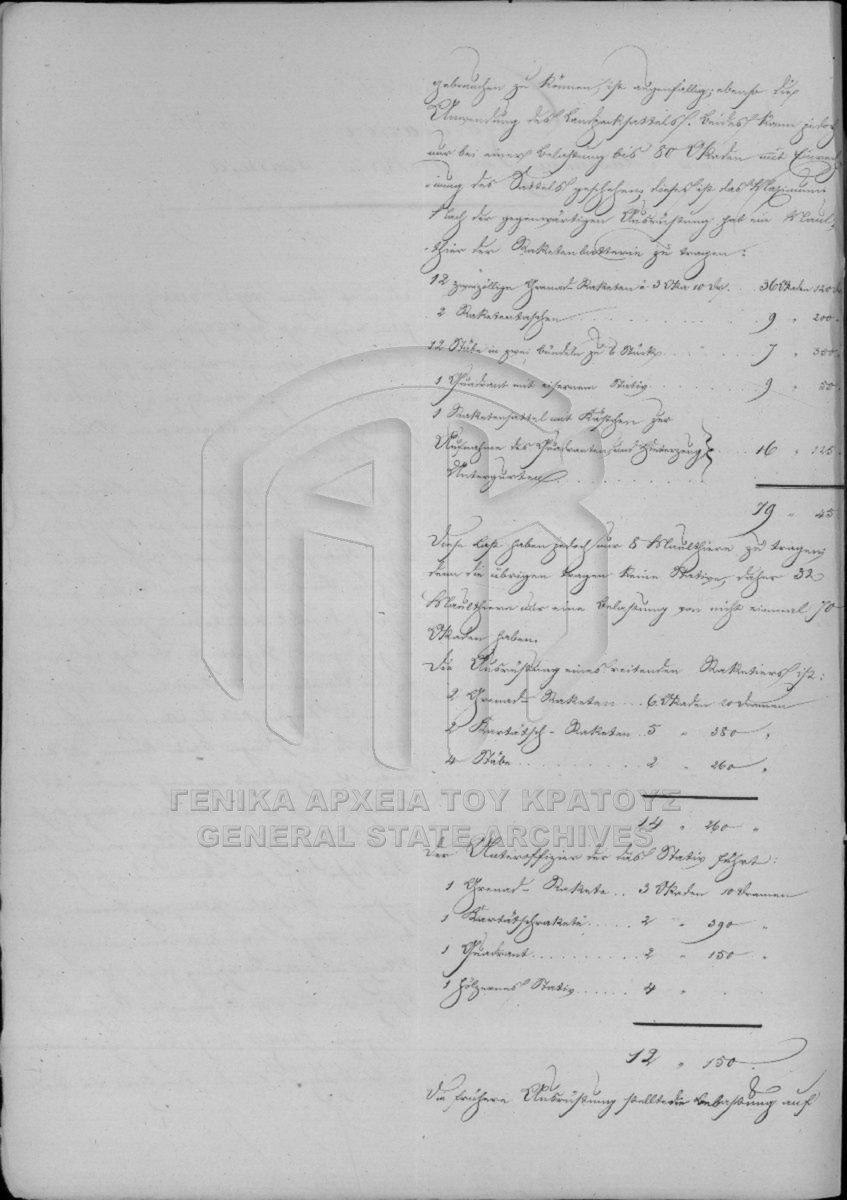 gebrauchen zu können, ist augenfällig; ebenso die
Anwendung des Landpacksattels. Beides kann jedoch
nur bei einer Belastung bis 80 Okaden mit Einrech-
nung des Sattels geschehen, dieses ist das Maximum.
Nach der gegenwärtigen Ausrüstung hab ein Maul-
thier der Raketenbatterie zu tragen:
12 zweizöllige Grenad-Raketen à 3 Oka 10 Dr. .. 36 Okaden 120 Dr
2 Raketentaschen 9 " 200
12 Stäbe in zwei Bündeln zu 6 Stück 7 " 300
1 Quadrant mit eisernem Stativ 9 " 50
1 Raketensattel mit Kästchen zur
Aufnahme des Quadranten, sammt Hinterzeug 16 " 125
Untergurten
79 " 45
Diese Last haben jedoch nur 8 Maulthiere zu tragen,
denn die übrigen tragen keine Stative, daher 32
Maulthiere nur eine Belastung von nicht einmal 70
Okaden haben.
Die Ausrüstung eines reitenden Raketiers ist:
2 Grenad-Raketen ... 6 Okaden 20 Dramen
2 Kartätsch-Raketen .. 5 " 380 "
4 Stäbe 2 " 260 "
14 " 260 "
Der Unteroffizier der das Stativ führt:
1 Grenad-Rakete .. 3 Okaden 10 Dramen
1 Kartätschrakete 2 " 390 "
1 Quadrant 2 " 150 "
1 hölzernes Stativ 4 "
12 " 150
Die frühere Ausrüstung stellte die Belastung auf
ΓΕΝΙΚΑ ΑΡΧΕΙΑ ΤΟΥ ΚΡΑΤΟΥΣ
GENERAL STATE ARCHIVES